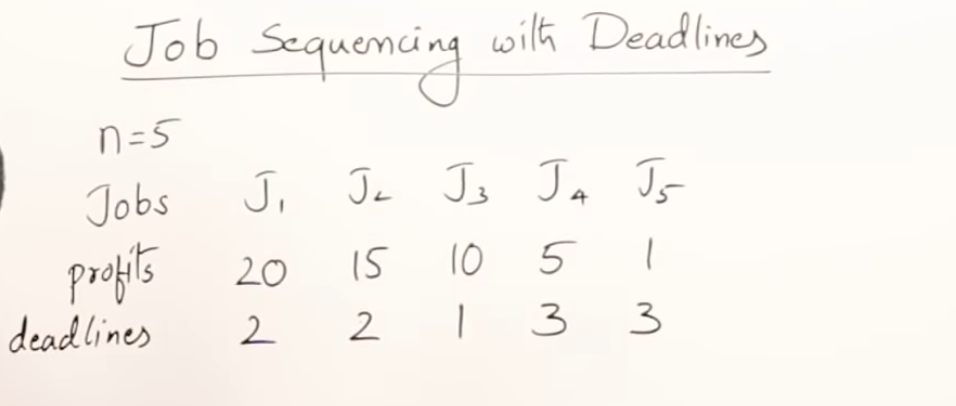 Job Sequencing with Deadlines
n=5
Jobs J1 J2 J3 J4 J5
profits 20 15 10 5 1
deadlines 2 2 1 3 3